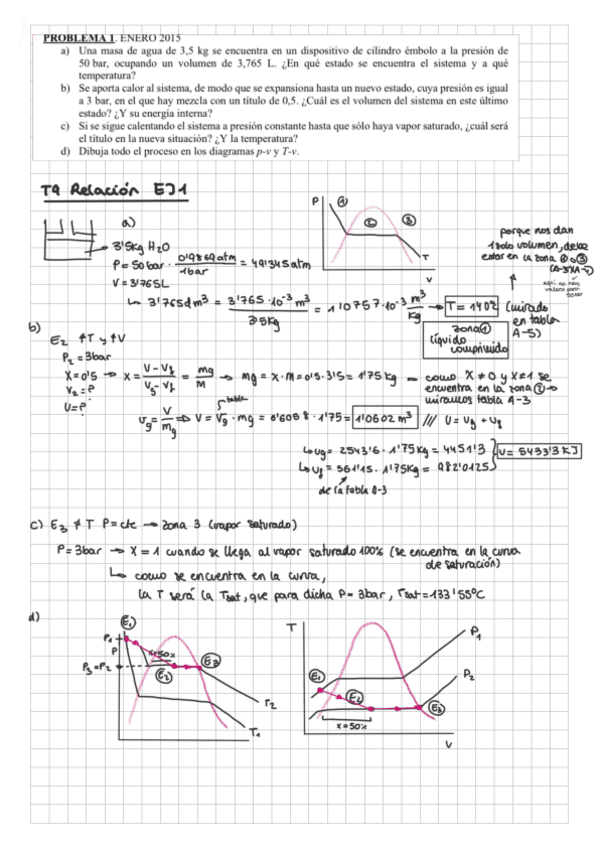 PROBLEMA 1. ENERO 2015
a) Una masa de agua de 3,5 kg se encuentra en un dispositivo de cilindro émbolo a la presión de
50 bar, ocupando un volumen de 3,765 L. ¿En qué estado se encuentra el sistema y a qué
temperatura?
b) Se aporta calor al sistema, de modo que se expansiona hasta un nuevo estado, cuya presión es igual
a 3 bar, en el que hay mezcla con un título de 0,5. ¿Cuál es el volumen del sistema en este último
estado? ¿Y su energía interna?
c) Si se sigue calentando el sistema a presión constante hasta que sólo haya vapor saturado, ¿cuál será
el título en la nueva situación? ¿Y la temperatura?
d) Dibuja todo el proceso en los diagramas p-v y T-v.
T9 Relación EJ1
a)
3'5kg H2O
P = 50 bar · 0'9869 atm / 1 bar = 49'345 atm
V = 3'765L
↳ 3'765 dm³ = 3'765 · 10⁻³ m³ / 3'5kg = 1'10757·10⁻³ m³/Kg → T = 140º (mirado en tabla A-5)
P
①
②
③
T
v
porque nos dan
1 solo volumen, debe
estar en la zona ① o ③
(A-5)(A-4)
zona ①
líquido
comprimido
b)
E2 ↑T y ↑V
P2 = 3bar
X = 0'5 → X = V - Vf / Vg - Vf = mg / M → mg = X · M = 0'5 · 3'5 = 1'75 kg — como X ≠ 0 y X ≠ 1 se
encuentra en la zona ② →
miramos tabla A-3
V2 = ?
U = ?
tabla
vg = V / mg ⇒ V = Vg · mg = 0'6058 · 1'75 = 1'0602 m³ /// U = Ug + Uf
↳ Ug = 2543'6 · 1'75 Kg = 4451'3
↳ Uf = 561'15 · 1'75Kg = 982'0125
U = 5433'3 KJ
de la tabla A-3
c) E3 ↑ T P = cte → zona 3 (vapor saturado)
P = 3bar → X = 1 cuando se llega al vapor saturado 100% (se encuentra en la curva
de saturación)
↳ como se encuentra en la curva,
la T será la Tsat, que para dicha P = 3bar, Tsat = 133'55ºC
d)
E1
P1
P
X=50%
P3 = P2
E2
E3
T2
T1
T
P1
P2
E1
E2
E3
X = 50%
V